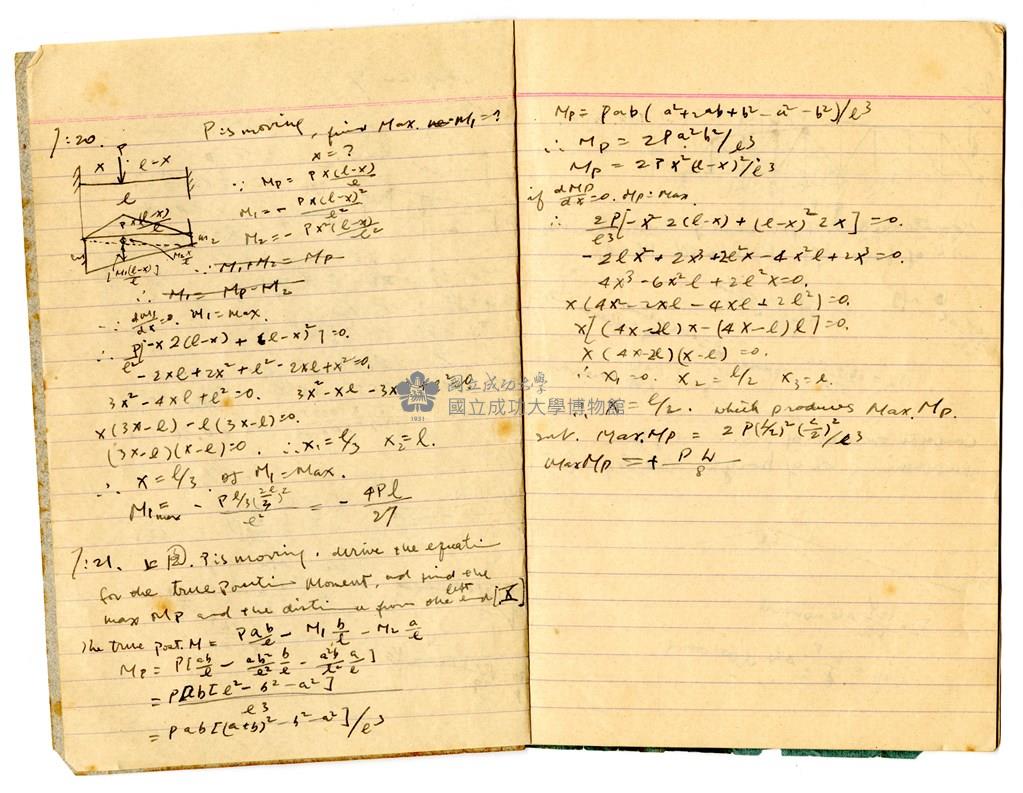 7:20. P is moving, find Max. M₁ = ?
x = ?
P
x l-x
l
Px(l-x)/l
M₁(l-x)/l
∵ Mp = Px(l-x)/l
M₁ = - Px(l-x)²/l²
M₂ = - Px²(l-x)/l²
∵ M₁+M₂ = Mp
∴ M₁ = Mp-M₂
∵ dM₁/dx = 0. M₁ = Max.
∴ P/l² [-x 2(l-x) + (l-x)²] = 0.
-2xl + 2x² + l² - 2xl + x² = 0.
3x² - 4xl + l² = 0. 3x² - xl - 3x
x(3x-l) - l(3x-l) = 0.
(3x-l)(x-l) = 0 ∴ x₁ = l/3 x₂ = l.
∴ x = l/3 of M₁ = Max.
M₁max = - P l/3 (2l/3)²/l² = - 4Pl/27
7:21. 上圖. P is moving. derive the equation
for the true position Moment, and find the
max Mp and the distance from the left end [x]
The true posit. M = Pab/l - M₁ b/l - M₂ a/l
Mp = P[ab/l - ab²/l² b/l - a²b/l² a/l]
= Pab[l² - b² - a²]/l³
= Pab[(a+b)² - b² - a²]/l³
Mp = Pab(a²+2ab+b² - a² - b²)/l³
∴ Mp = 2Pa²b²/l³
Mp = 2Px²(l-x)²/l³
if dMp/dx = 0. Mp = Max.
∴ 2P/l³ [-x² 2(l-x) + (l-x)² 2x] = 0.
-2lx² + 2x³ + 2l²x - 4x²l + 2x³ = 0.
4x³ - 6x²l + 2l²x = 0.
x(4x² - 2xl - 4xl + 2l²) = 0.
x[(4x-2l)x - (4x-l)l] = 0.
x(4x-2l)(x-l) = 0.
∴ x₁ = 0. x₂ = l/2 x₃ = l.
∴ x = l/2. which produces Max. Mp.
Max. Mp = 2P(l/2)²(l/2)²/l³
Max Mp = + PL/8
國立成功大學
國立成功大學博物館
1931